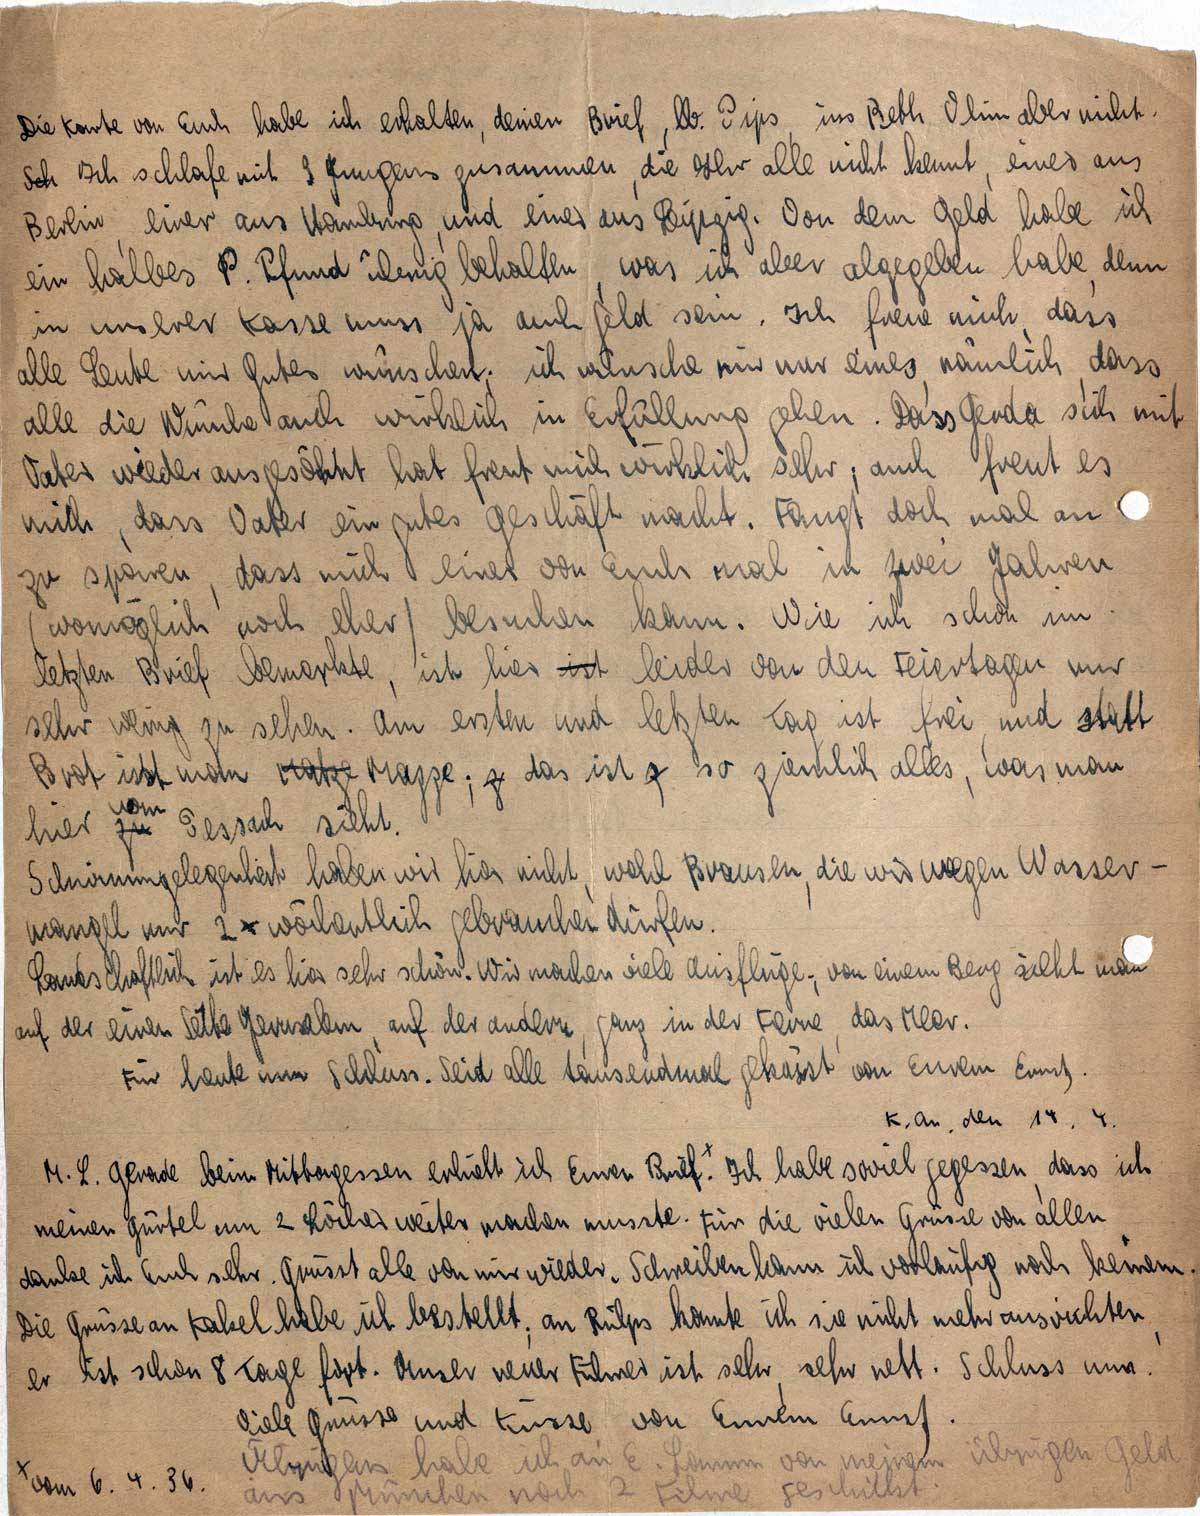 Die Karte von Euch habe ich erhalten, deinen Brief, lb. Pips, ins Beth Olim aber nicht.
Ich schlafe mit 3 Jungens zusammen, die Ihr alle nicht kennt, einer aus
Berlin, einer aus Hamburg und einer aus Leipzig. Von dem Geld habe ich
ein halbes P. Pfund übrig behalten, was ich aber abgegeben habe, denn
in unserer Kasse muss ja auch Geld sein. Ich freue mich, dass
alle Leute mir Gutes wünschen; ich wünsche mir nur eines, nämlich, dass
alle die Wünsche auch wirklich in Erfüllung gehen. Dass Gerda sich mit
Vater wieder ausgesöhnt hat freut mich wirklich sehr; auch freut es
mich, dass Vater ein gutes Geschäft macht. Fangt doch mal an
zu sparen, dass mich einer von Euch mal in zwei Jahren
(womöglich noch eher) besuchen kann. Wie ich schon im
letzten Brief bemerkte, ist hier ist leider von den Feiertagen nur
sehr wenig zu sehen. Am ersten und letzten Tag ist frei und statt
Brot isst man Mazze; das ist so ziemlich alles, was man
hier vom Pessach sieht.
Schwimmgelegenheit haben wir hier nicht, wohl Brausen, die wir wegen Wasser-
mangel nur 2 x wöchentlich gebrauchen dürfen.
Landschaftlich ist es hier sehr schön. Wir machen viele Ausflüge; von einem Berg sieht man
auf der einen Seite Jerusalem, auf der andern, ganz in der Ferne, das Meer.
Für heute nun Schluss. Seid alle tausendmal geküsst von Eurem Ernst.
K. An. den 14. 4.
M. L. Gerade beim Mittagessen erhielt ich Euren Brief.x Ich habe soviel gegessen, dass ich
meinen Gürtel um 2 Löcher weiter machen musste. Für die vielen Grüsse von allen
danke ich Euch sehr. Grüsst alle von mir wieder. Schreiben kann ich vorläufig noch keinem.
Die Grüsse an Kabel habe ich bestellt; an Rülps konnte ich sie nicht mehr ausrichten,
er ist schon 8 Tage fort. Unser neuer Führer ist sehr, sehr nett. Schluss nun.
Viele Grüsse und Küsse von Eurem Ernst.
x vom 6. 4. 36.
Übrigens habe ich an E. von meinem übrigen Geld
aus München noch 2 Filme geschickt.